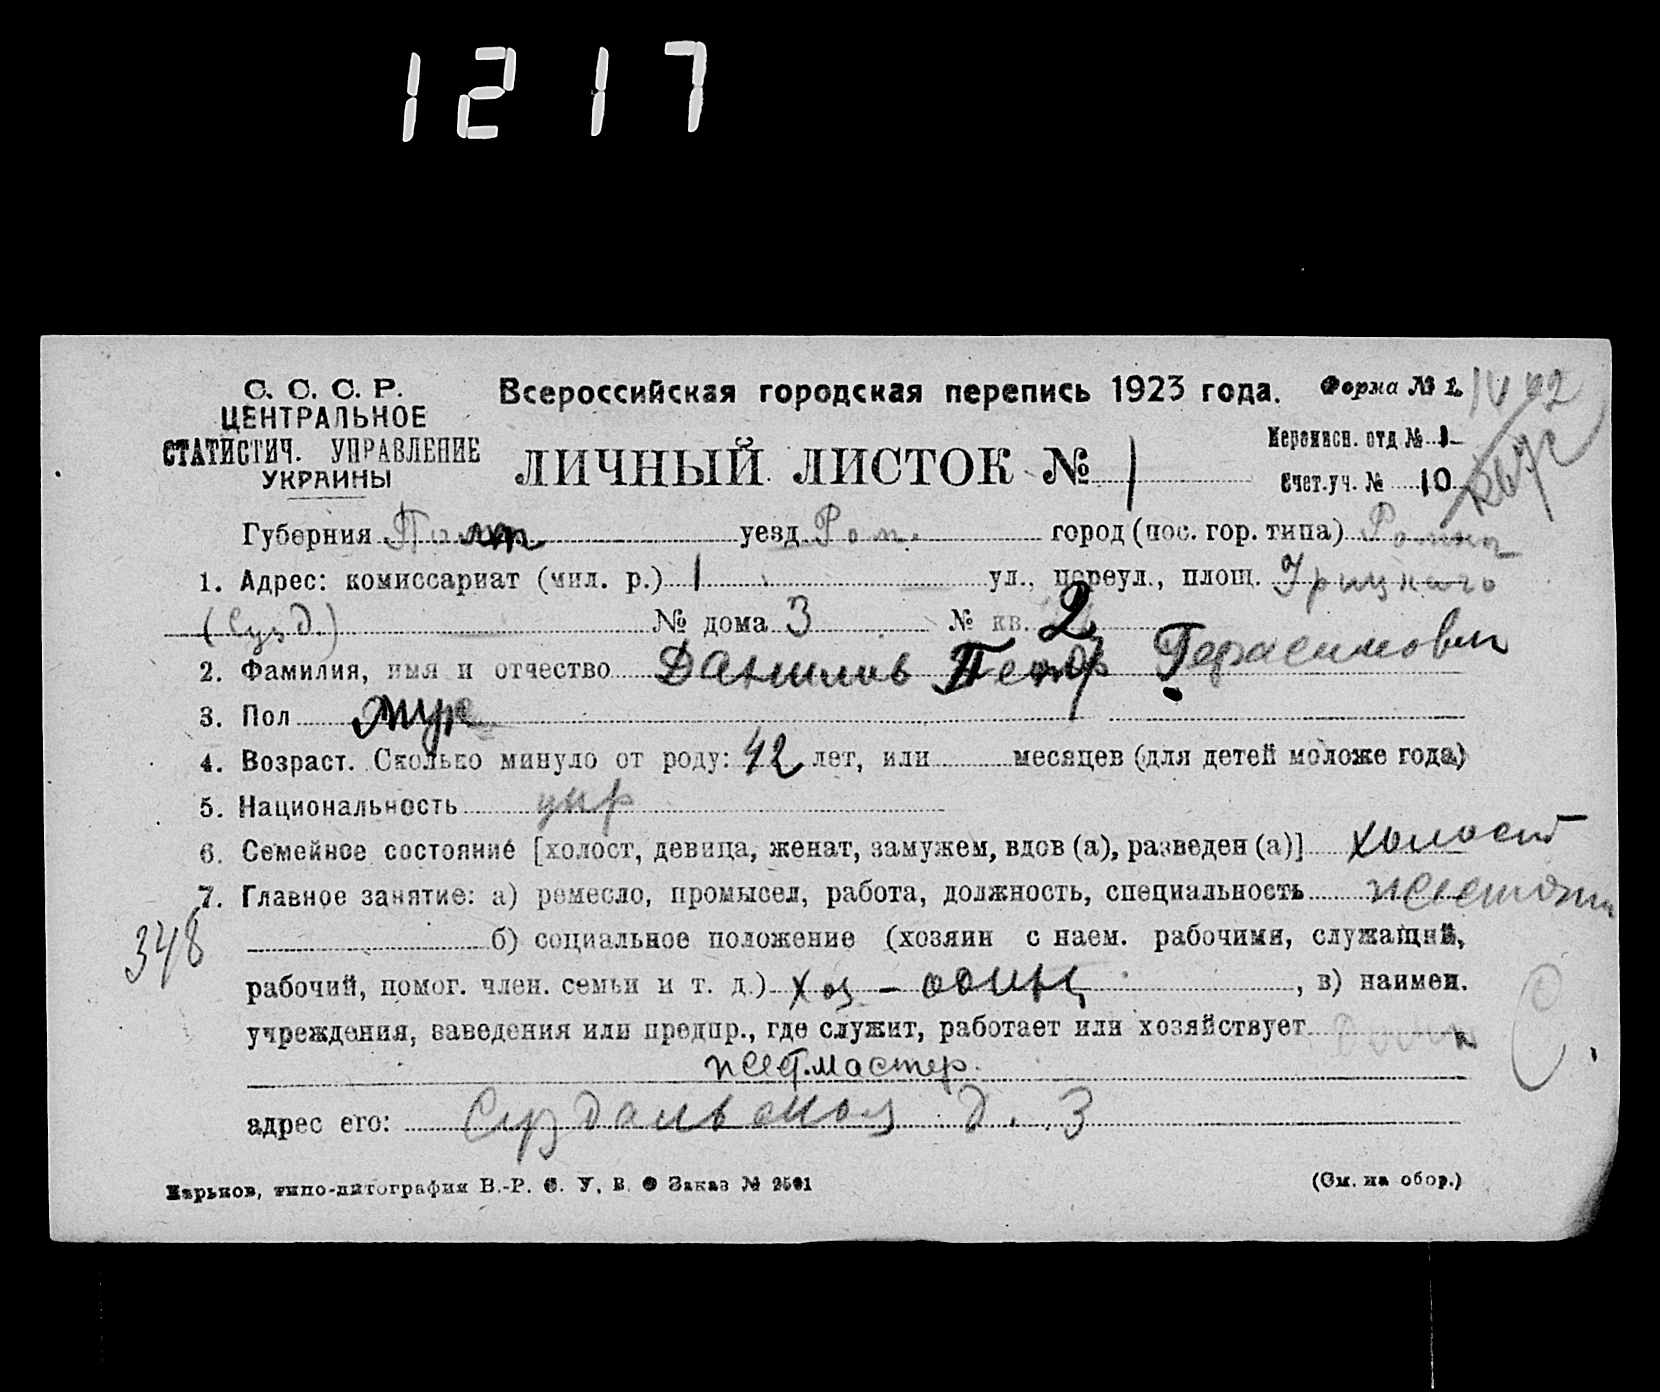 1217
С. С. С. Р.
ЦЕНТРАЛЬНОЕ
СТАТИСТИЧ. УПРАВЛЕНИЕ
УКРАИНЫ
Всероссийская городская перепись 1923 года.
Форма № 1.
ЛИЧНЫЙ ЛИСТОК № 1
Переписн. отд № 1
Счет.уч. № 10
Губерния Полт уезд Ром. город (пос. гор. типа) Ромны
1. Адрес: комиссариат (мил. р.) 1 ул., переул., площ. Урицкаго
(Сузд.) № дома 3 № кв. 2
2. Фамилия, имя и отчество Данилов Петр Герасимович
3. Пол муж
4. Возраст. Сколько минуло от роду: 42 лет, или месяцев (для детей моложе года)
5. Национальность укр
6. Семейное состояние [холост, девица, женат, замужем, вдов (а), разведен (а)] холост
7. Главное занятие: а) ремесло, промысел, работа, должность, специальность жестян
348
б) социальное положение (хозяин с наем. рабочими, служащий,
рабочий, помог. член. семьи и т. д.) хоз - один , в) наимен.
учреждения, заведения или предпр., где служит, работает или хозяйствует
жест. мастер.
адрес его: Суздальская д. 3
Харьков, типо-литография В.-Р. С. У. В. Заказ № 2501
(См. на обор.)